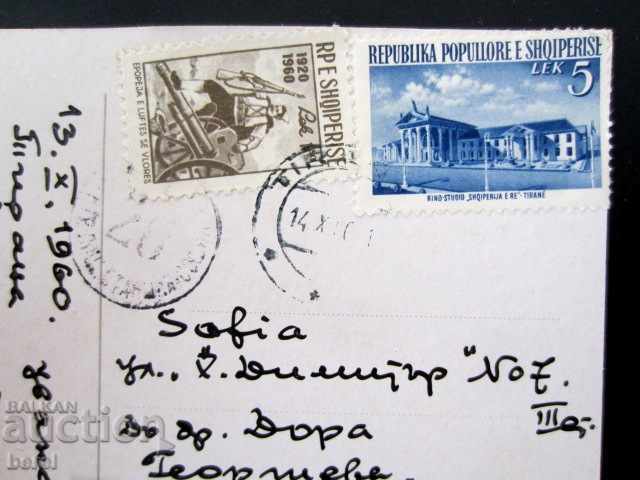 1920
1960
RP E SHQIPERISE
Lek
EPOPEJA E LUFTES SE VLORES
REPUBLIKA POPULLORE E SHQIPERISE
LEK 5
KINO-STUDIO „SHQIPERIJA E RE“-TIRANE
14 X
13.X.1960.
Тирана
Sofia
ул. „Х. Димитър" No 7.
До др. Дора
Георгиева.
BALKAN
auction
befol